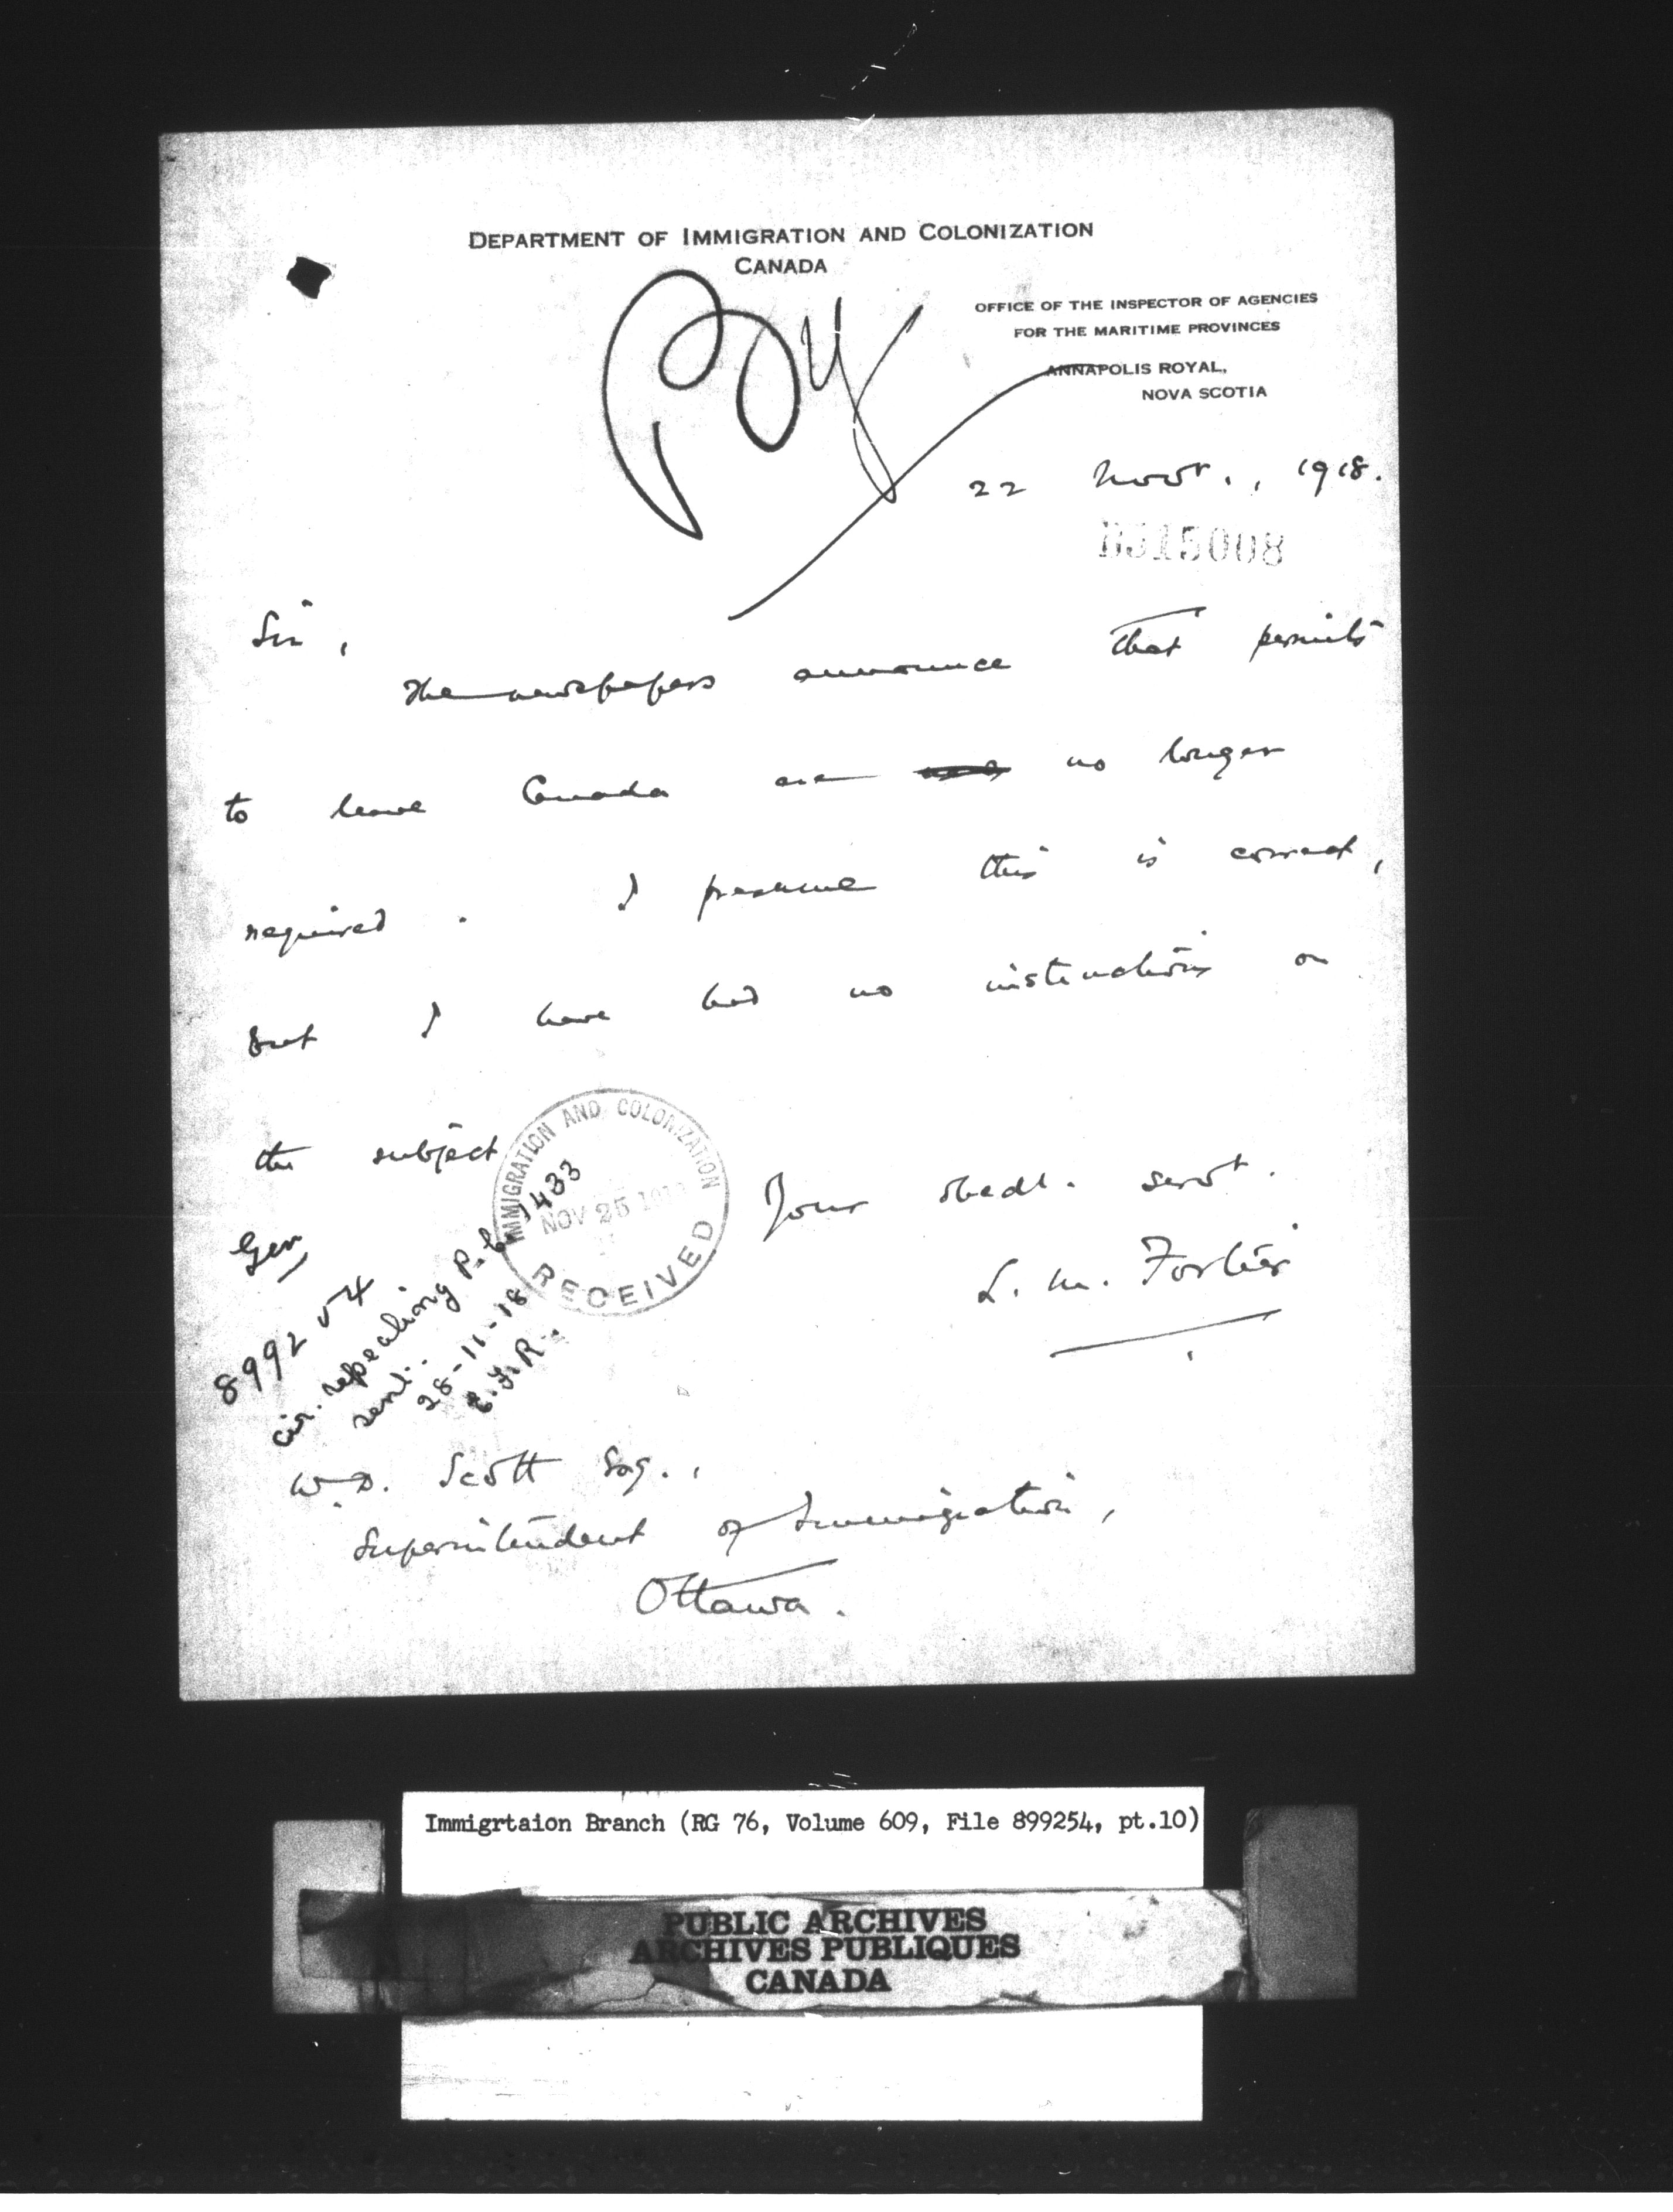 DEPARTMENT OF IMMIGRATION AND COLONIZATION
CANADA
OFFICE OF THE INSPECTOR OF AGENCIES
FOR THE MARITIME PROVINCES
ANNAPOLIS ROYAL,
NOVA SCOTIA
22 Novr., 1918.
15008
Sir,
The newspapers announce that permits
to leave Canada are no longer
required. I presume this is correct,
but I have had no instructions on
the subject
IMMIGRATION AND COLONIZATION
NOV 25 191
RECEIVED
Your obedt. servt.
L. M. Fortier
Gen
8992 54
cir. repealing P.C. 1433
sent.
28-11-18
F.R.
W.D. Scott Esq.,
Superintendent of Immigration,
Ottawa.
Immigrtaion Branch (RG 76, Volume 609, File 899254, pt.10)
PUBLIC ARCHIVES
ARCHIVES PUBLIQUES
CANADA